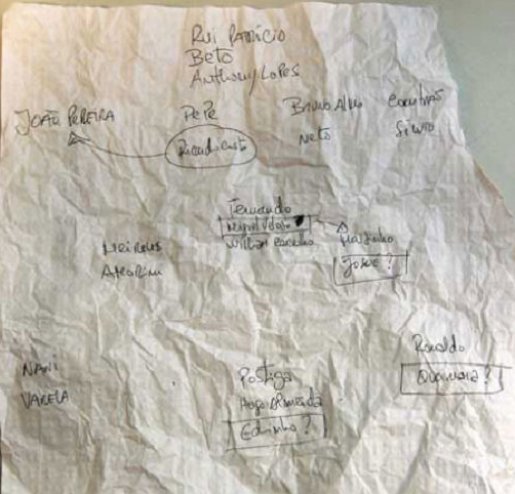 Rui Patrício
Beto
Anthony Lopes
João Pereira
Pepe
Bruno Alves
Coentrão
Ricardo Costa
Neto
Sílvio
Fernando
Miguel Veloso
William Carvalho
Meireles
Amorim
Martinho
Josué ?
Nani
Varela
Postiga
Hugo Almeida
Edinho ?
Ronaldo
Quaresma ?